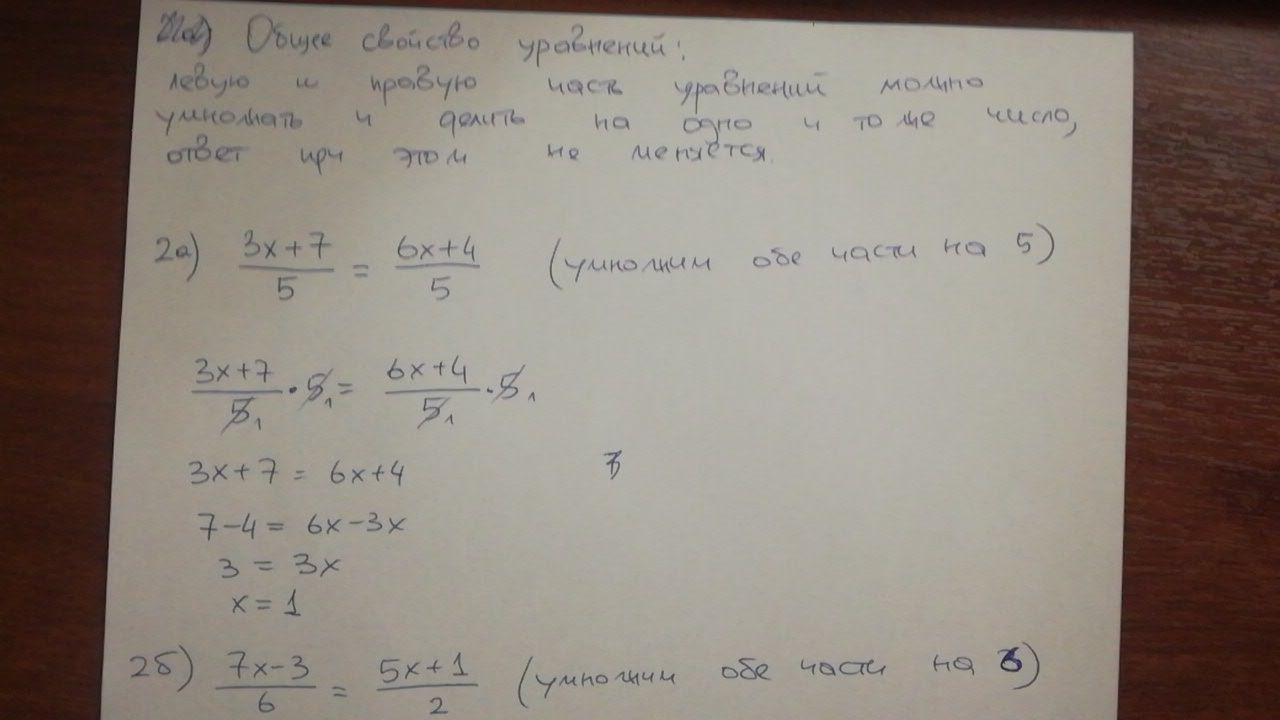 Общее свойство уравнений:
левую и правую часть уравнений можно
умножать и делить на одно и то же число,
ответ при этом не меняется.
2а) (3x+7)/5 = (6x+4)/5 (умножим обе части на 5)
(3x+7)/5₁ · 5₁ = (6x+4)/5₁ · 5₁
3x+7 = 6x+4
7-4 = 6x-3x
3 = 3x
x = 1
2б) (7x-3)/6 = (5x+1)/2 (умножим обе части на 6)